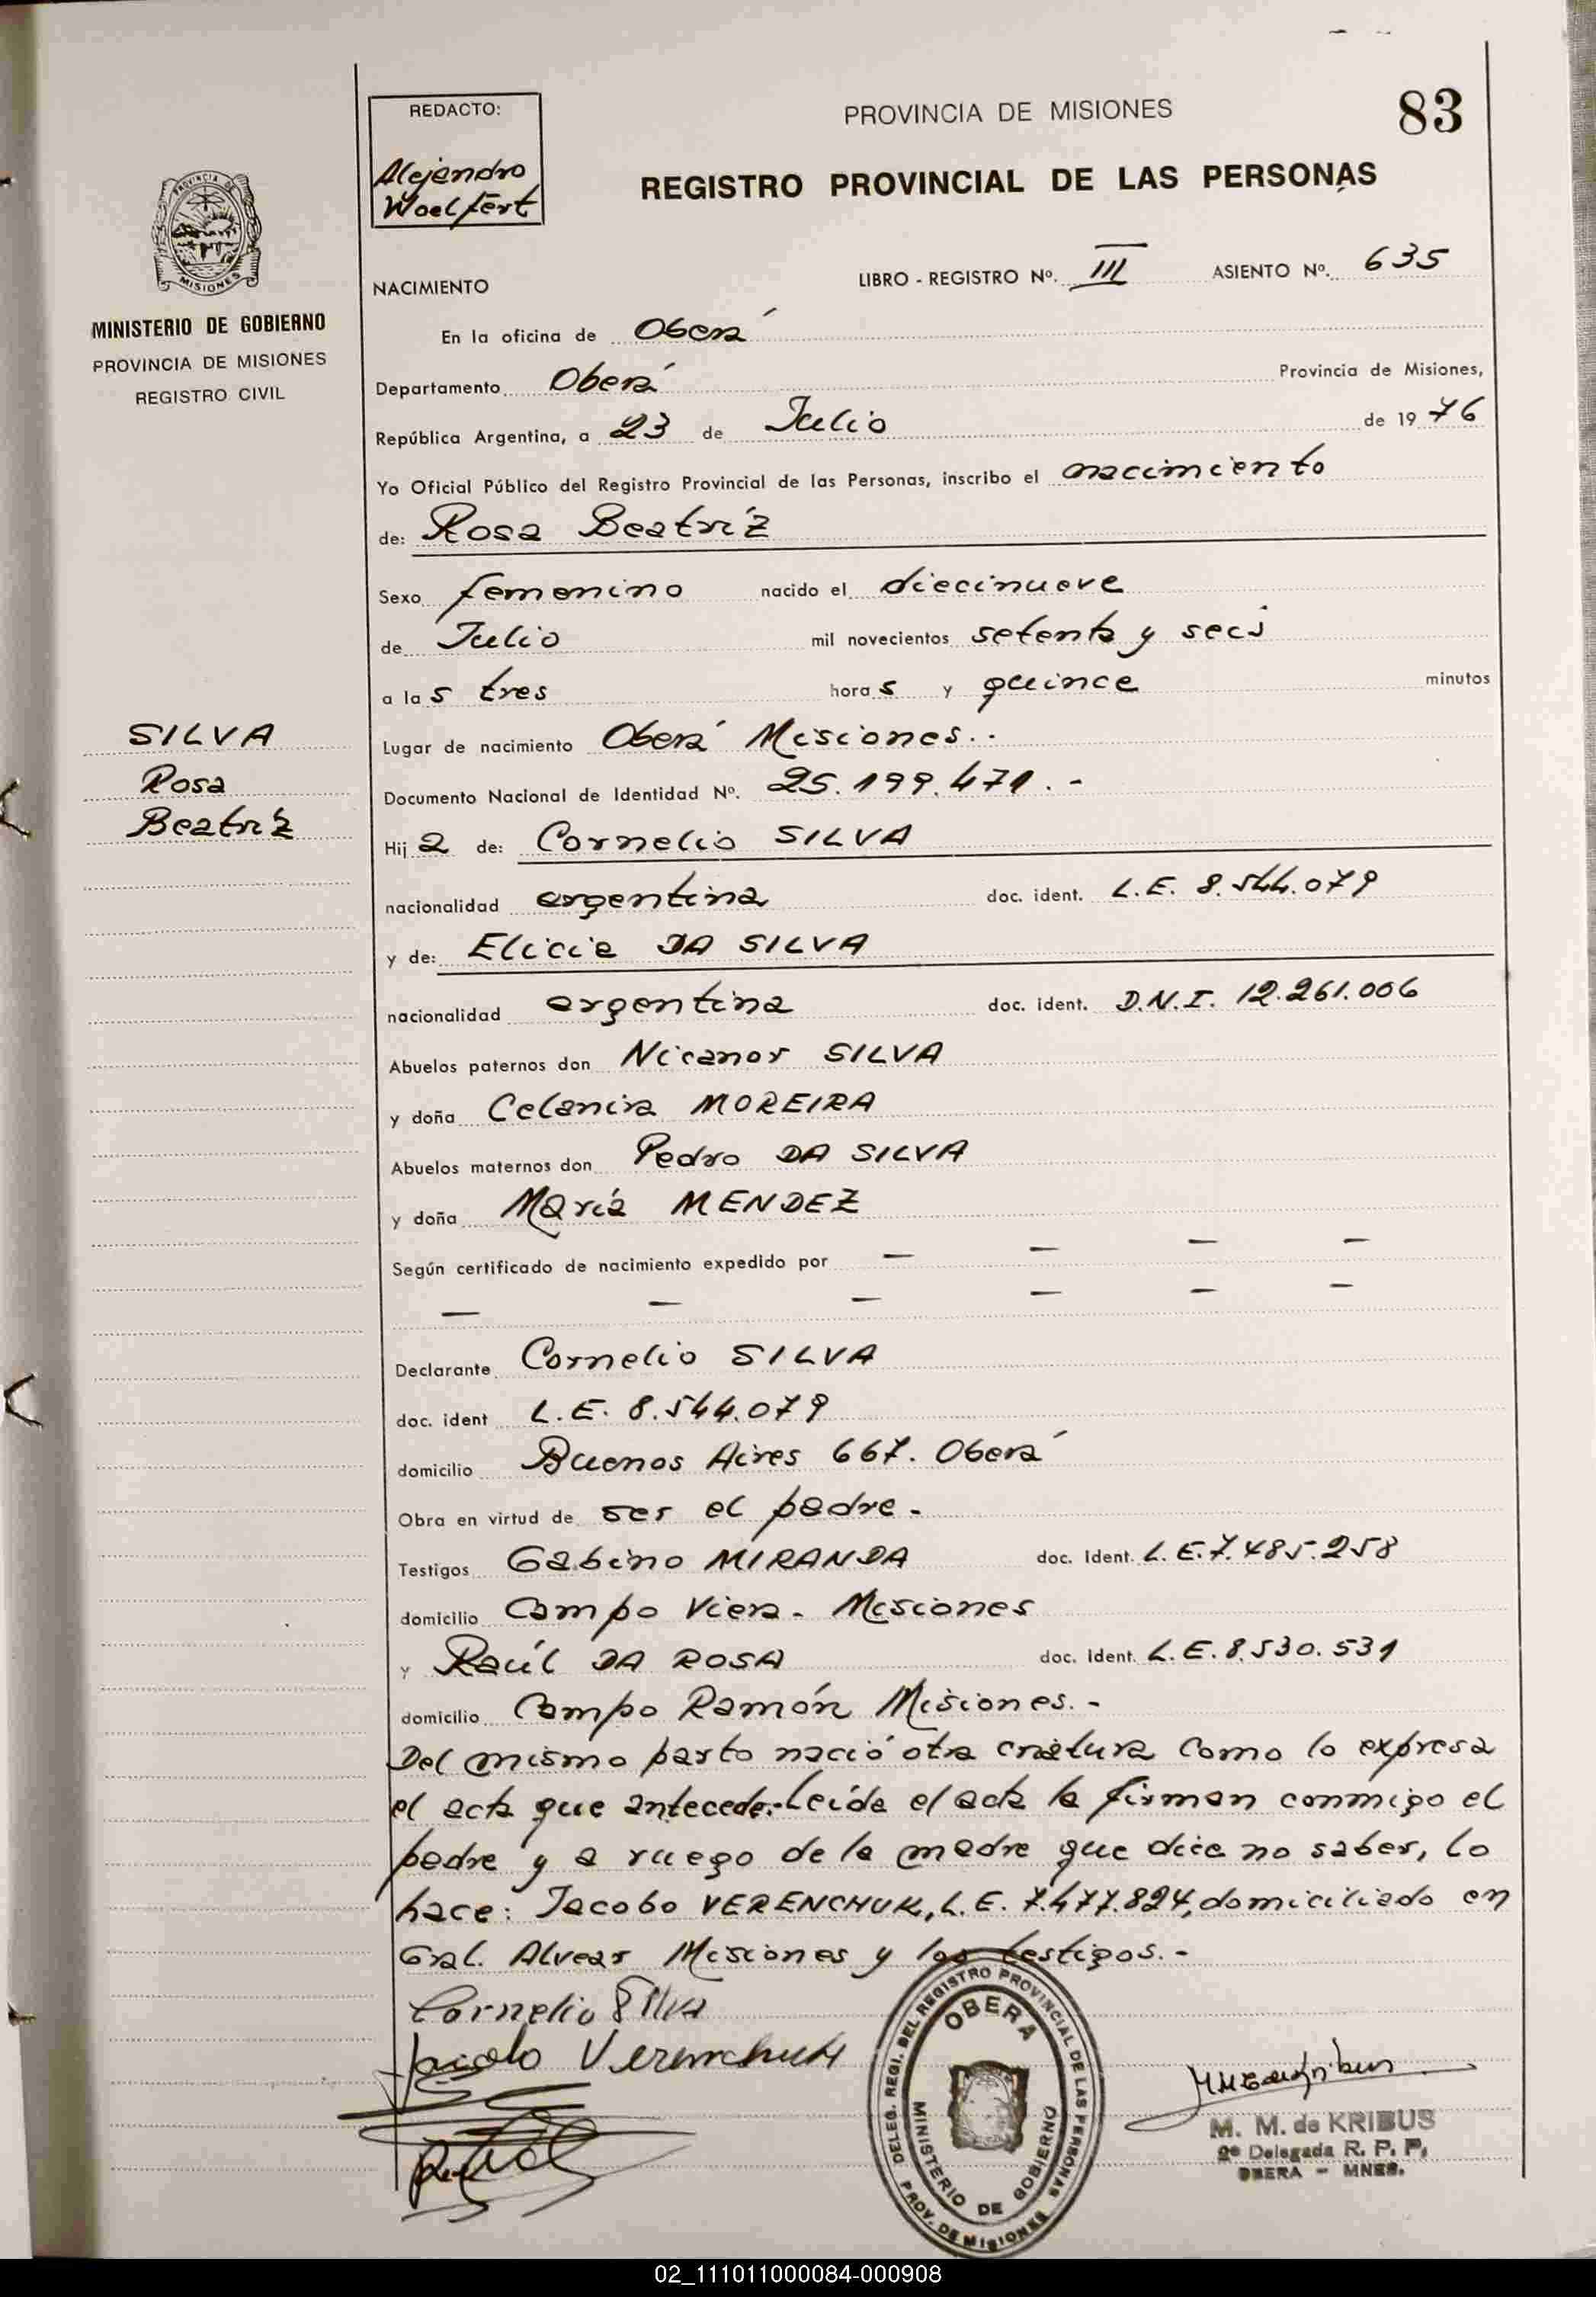 REDACTO:
Alejandro
Woelfert
PROVINCIA DE MISIONES
83
REGISTRO PROVINCIAL DE LAS PERSONAS
PROVINCIA DE
MISIONES
MINISTERIO DE GOBIERNO
PROVINCIA DE MISIONES
REGISTRO CIVIL
NACIMIENTO
LIBRO - REGISTRO Nº. III ASIENTO Nº. 635
En la oficina de Oberá
Departamento Oberá Provincia de Misiones,
República Argentina, a 23 de Julio de 19 76
Yo Oficial Público del Registro Provincial de las Personas, inscribo el nacimiento
de: Rosa Beatríz
Sexo femenino nacido el diecinueve
de Julio mil novecientos setenta y seis
a la s tres hora s y quince minutos
SILVA
Rosa
Beatríz
Lugar de nacimiento Oberá Misiones..
Documento Nacional de Identidad Nº. 25.199.471.-
Hij a de: Cornelio SILVA
nacionalidad argentina doc. ident. L.E. 8.544.079
y de: Elicia DA SILVA
nacionalidad argentina doc. ident. D.N.I. 12.261.006
Abuelos paternos don Nicanor SILVA
y doña Celancia MOREIRA
Abuelos maternos don Pedro DA SILVA
y doña María MENDEZ
Según certificado de nacimiento expedido por — — — —
— — — — — —
Declarante Cornelio SILVA
doc. ident L.E. 8.544.079
domicilio Buenos Aires 667. Oberá
Obra en virtud de ser el padre.-
Testigos Gabino MIRANDA doc. Ident. L.E. 7.485.258
domicilio Campo Viera - Misiones
y Raúl DA ROSA doc. Ident. L.E. 8.530.531
domicilio Campo Ramón Misiones.-
Del mismo parto nació otra criatura como lo expresa
el acta que antecede.- Leída el acta la firman conmigo el
padre y a ruego de la madre que dice no saber, lo
hace: Jacobo VERENCHUK, L.E. 7.477.824, domiciliado en
Gral. Alvear Misiones y los testigos.-
Cornelio Silva
Jacobo Verenchuk
DELEG. REGI. DEL REGISTRO PROVINCIAL DE LAS PERSONAS
OBERA
MINISTERIO DE GOBIERNO
PROV. DE MISIONES
M. M. de KRIBUS
2ª Delegada R. P. P.
OBERA - MNES.
02_111011000084-000908